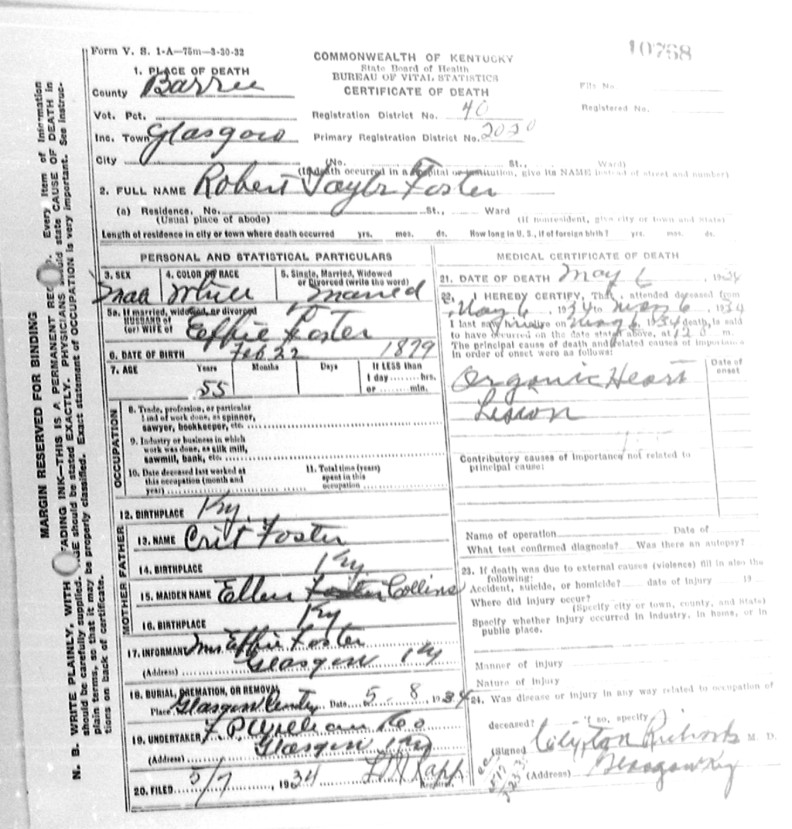 Form V. S. 1-A—75m—3-30-32
10768
COMMONWEALTH OF KENTUCKY
State Board of Health
BUREAU OF VITAL STATISTICS
CERTIFICATE OF DEATH
1. PLACE OF DEATH
County Barren
File No.
Vot. Pct. Registration District No. 40 Registered No.
Inc. Town Glasgow Primary Registration District No. 2020
City (No. St., Ward)
(If death occurred in a hospital or institution, give its NAME instead of street and number)
2. FULL NAME Robert Taylor Foster
(a) Residence. No. St., Ward
(Usual place of abode) (If nonresident, give city or town and State)
Length of residence in city or town where death occurred yrs. mos. ds. How long in U. S., if of foreign birth? yrs. mos. ds.
PERSONAL AND STATISTICAL PARTICULARS
3. SEX 4. COLOR OR RACE 5. Single, Married, Widowed
or Divorced (write the word)
Male White Married
5a. If married, widowed, or divorced
HUSBAND of
(or) WIFE of Effie Foster
6. DATE OF BIRTH Feb 22 1879
7. AGE Years Months Days If LESS than
1 day hrs.
55 or min.
OCCUPATION
8. Trade, profession, or particular
kind of work done, as spinner,
sawyer, bookkeeper, etc.
9. Industry or business in which
work was done, as silk mill,
sawmill, bank, etc.
10. Date deceased last worked at
this occupation (month and
year)
11. Total time (years)
spent in this
occupation
12. BIRTHPLACE Ky
MOTHER FATHER
13. NAME Crit Foster
14. BIRTHPLACE Ky
15. MAIDEN NAME Ellen Foster Collins
16. BIRTHPLACE Ky
17. INFORMANT Mrs Effie Foster
(Address) Glasgow Ky
18. BURIAL, CREMATION, OR REMOVAL
Place Glasgow Date 5-8 1934
19. UNDERTAKER
(Address) Glasgow Ky
20. FILED 5/7 1934 Rapp
Registrar
MEDICAL CERTIFICATE OF DEATH
21. DATE OF DEATH May 6 1934
22. I HEREBY CERTIFY, That I attended deceased from
May 6 1934 to May 6 1934
I last saw h alive on May 6 1934 death is said
to have occurred on the date stated above, at m.
The principal cause of death and related causes of importance
in order of onset were as follows:
Date of
onset
Organic Heart
Lesion
Contributory causes of importance not related to
principal cause:
Name of operation Date of
What test confirmed diagnosis? Was there an autopsy?
23. If death was due to external causes (violence) fill in also the
following:
Accident, suicide, or homicide? date of injury 19
Where did injury occur?
(Specify city or town, county, and State)
Specify whether injury occurred in industry, in home, or in
public place.
Manner of injury
Nature of injury
24. Was disease or injury in any way related to occupation of
deceased? If so, specify
(Signed) M. D.
(Address) Glasgow Ky
MARGIN RESERVED FOR BINDING
N. B. WRITE PLAINLY, WITH FADING INK—THIS IS A PERMANENT RECORD. Every item of information
should be carefully supplied. AGE should be stated EXACTLY. PHYSICIANS should state CAUSE OF DEATH in
plain terms, so that it may be properly classified. Exact statement of OCCUPATION is very important. See instruc-
tions on back of certificate.